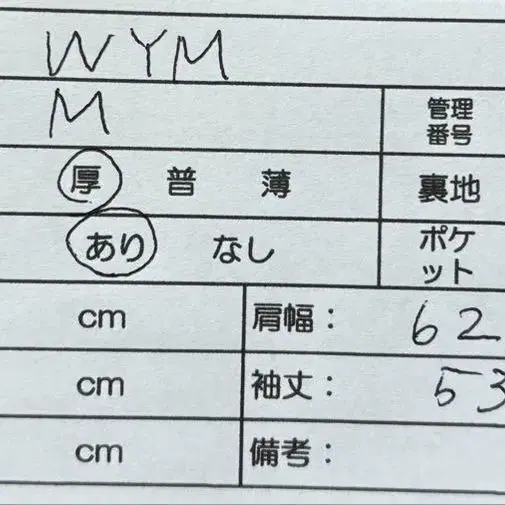 WYM
M 管理番号
厚 普 薄 裏地
あり なし ポケット
cm 肩幅： 62
cm 袖丈： 53
cm 備考：